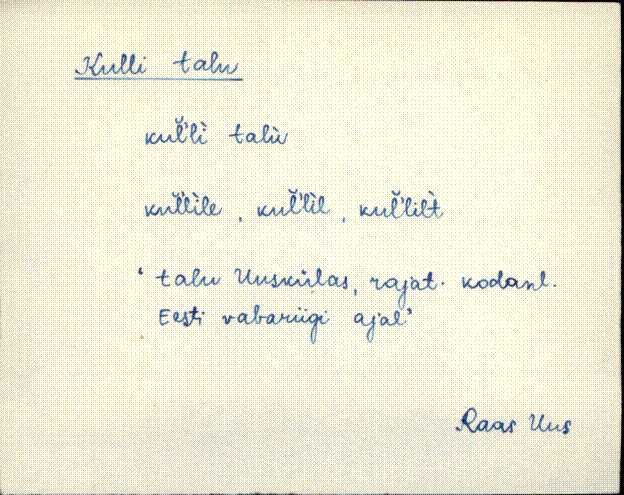 Kulli talu
kul̆'l̀i talù
kul̆'l̀ile, kul̆'l̀il, kul̆'lilt̀
‘talu Uuskülas, rajat. kodanl.
Eesti vabariigi ajal’
Raas Uus